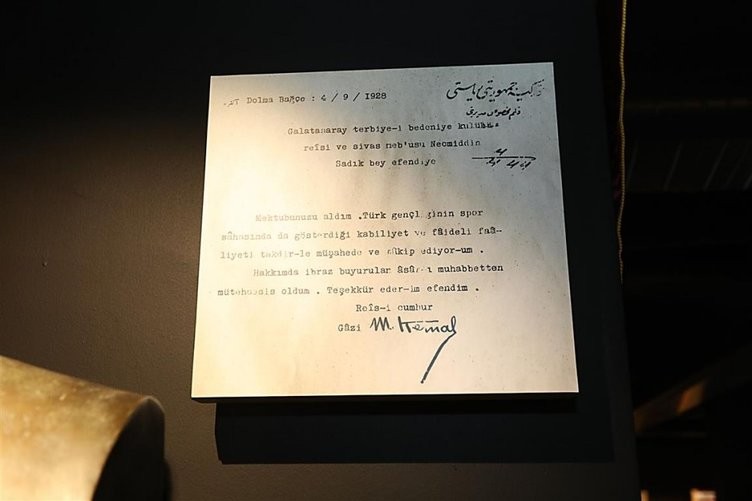 Dolma Bağçe : 4 / 9 / 1928
تركيه جمهوريتى رياستى
قلم مخصوص مديريتى
Galatasaray terbiye-i bedeniye kulübü
reîsi ve sivas meb'usu Necmiddin
Sadık bey efendiye
Mektubunuzu aldım .Türk gençliğinin spor
sâhasında da gösterdiği kabiliyet ve fâideli faâ-
liyeti takdir-le müşahede ve tâkip ediyor-um .
Hakkımda ibraz buyurulan âsâr-ı muhabbetten
mütehassis oldum . Teşekkür eder-im efendim .
Reîs-i cumhur
Gâzi M. Kemal